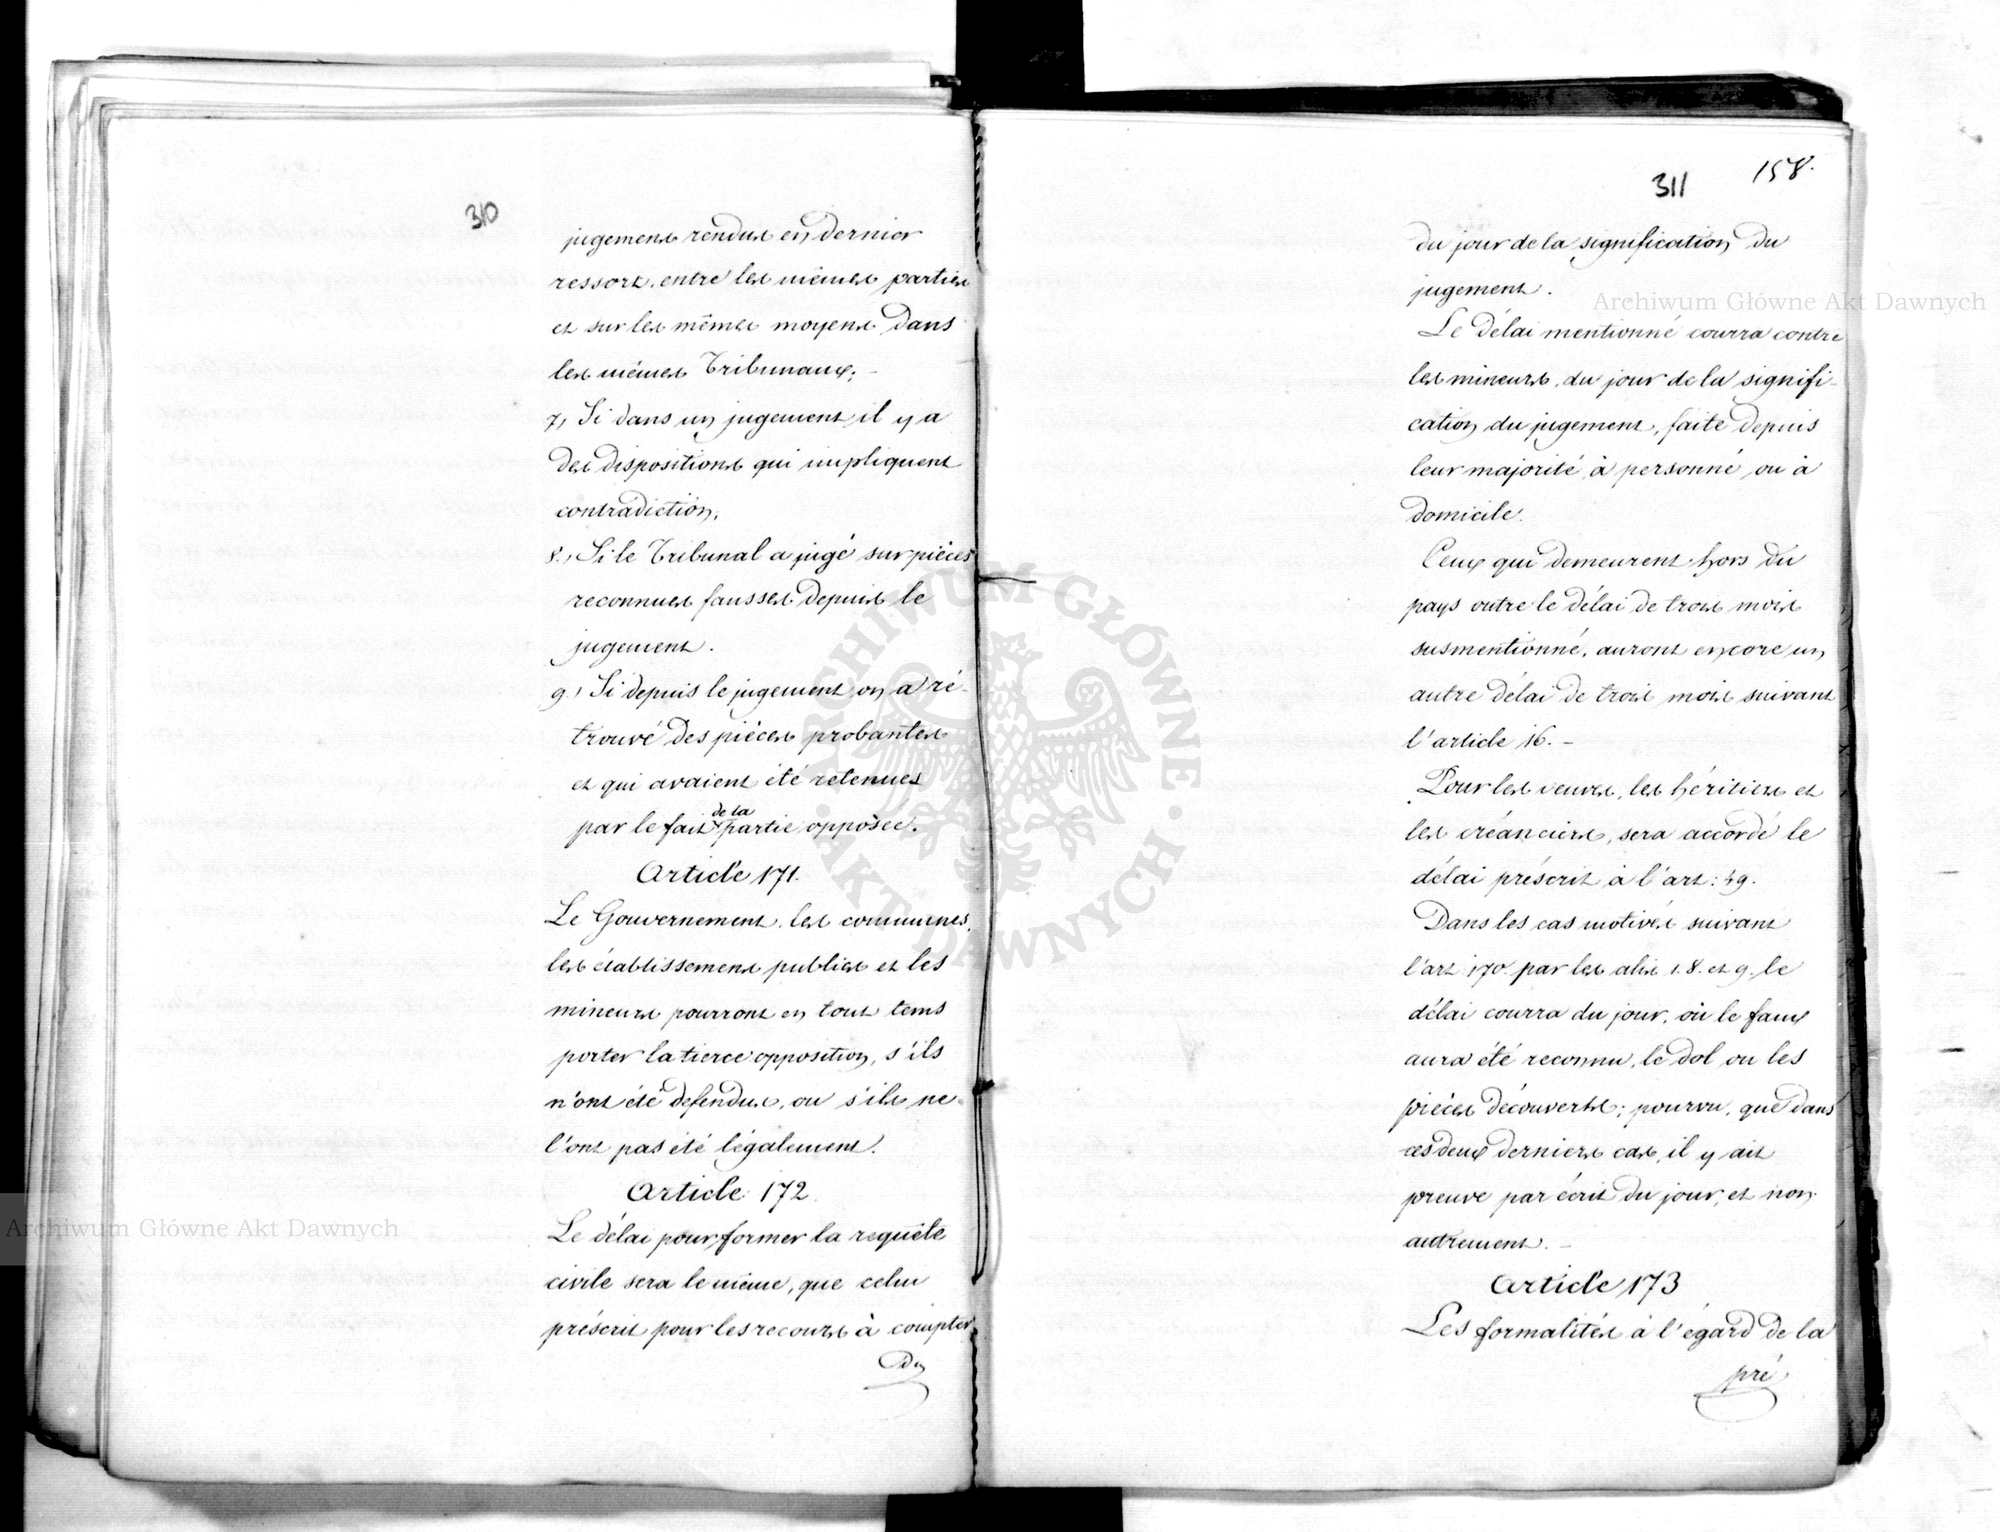 310
jugemens rendus en dernier
ressort, entre les mêmes parties
et sur les mêmes moyens dans
les mêmes Tribunaux;
7, Si dans un jugement il y a
des dispositions qui impliquent
contradiction;
8., Si le Tribunal a jugé sur pièces
reconnues fausses depuis le
jugement.
9., Si depuis le jugement on a ré-
trouvé des pièces probantes
et qui avaient été retenues
par le fait de la partie opposée.
Article 171.
Le Gouvernement, les communes,
les établissemens publics et les
mineurs pourront en tout tems
porter la tierce opposition, s'ils
n'ont été défendus, ou s'ils ne
l'ont pas été légalement.
Article 172.
Le délai pour former la requête
civile sera le même, que celui
préscrit pour les recours à compter
du
311 158.
du jour de la signification du
jugement.
Le délai mentionné courra contre
les mineurs, du jour de la signifi-
cation du jugement, faite depuis
leur majorité à personne ou à
domicile.
Ceux qui demeurent hors du
pays outre le délai de trois mois
susmentionné, auront encore un
autre délai de trois mois suivant
l'article 16. -
Pour les veuves, les héritiers et
les créanciers, sera accordé le
délai préscrit à l'art: 49.
Dans les cas motivés suivant
l'art 170. par les alis 1. 8. et 9. le
délai courra du jour, où le faux
aura été reconnu, le dol ou les
pièces découverts; pourvu, que dans
ces deux derniers cas, il y ait
preuve par écrit du jour, et non
autrement. -
Article 173
Les formalités à l'égard de la
pré
Archiwum Główne Akt Dawnych
Archiwum Główne Akt Dawnych
ARCHIWUM GŁÓWNE · AKT DAWNYCH ·